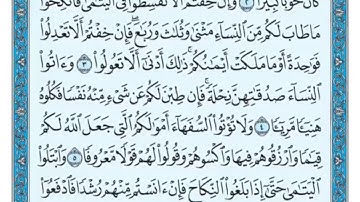 كَانَ حُوبًا كَبِيرًا ٢ وَإِنْ خِفْتُمْ أَلَّا تُقْسِطُوا۟ فِى ٱلْيَتَـٰمَىٰ فَٱنكِحُوا۟
مَا طَابَ لَكُم مِّنَ ٱلنِّسَآءِ مَثْنَىٰ وَثُلَـٰثَ وَرُبَـٰعَ ۖ فَإِنْ خِفْتُمْ أَلَّا تَعْدِلُوا۟
فَوَٰحِدَةً أَوْ مَا مَلَكَتْ أَيْمَـٰنُكُمْ ۚ ذَٰلِكَ أَدْنَىٰٓ أَلَّا تَعُولُوا۟ ٣ وَءَاتُوا۟
ٱلنِّسَآءَ صَدُقَـٰتِهِنَّ نِحْلَةً ۚ فَإِن طِبْنَ لَكُمْ عَن شَىْءٍ مِّنْهُ نَفْسًا فَكُلُوهُ
هَنِيٓـًٔا مَّرِيٓـًٔا ٤ وَلَا تُؤْتُوا۟ ٱلسُّفَهَآءَ أَمْوَٰلَكُمُ ٱلَّتِى جَعَلَ ٱللَّهُ لَكُمْ
قِيَـٰمًا وَٱرْزُقُوهُمْ فِيهَا وَٱكْسُوهُمْ وَقُولُوا۟ لَهُمْ قَوْلًا مَّعْرُوفًا ٥ وَٱبْتَلُوا۟
ٱلْيَتَـٰمَىٰ حَتَّىٰٓ إِذَا بَلَغُوا۟ ٱلنِّكَاحَ فَإِنْ ءَانَسْتُم مِّنْهُمْ رُشْدًا فَٱدْفَعُوٓا۟